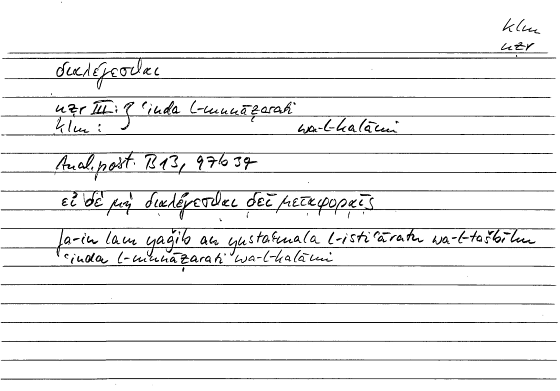 klm
nẓr
διαλέγεσθαι
nẓr III: } ʿinda l-munāẓarati
klm : wa-l-kalāmi
Anal. post. B 13, 97b37
εἰ δὲ μὴ διαλέγεσθαι δεῖ μεταφοραῖς
fa-in lam yaǧib an yustaʿmala l-istiʿāratu wa-l-tašbīhu
ʿinda l-munāẓarati wa-l-kalāmi